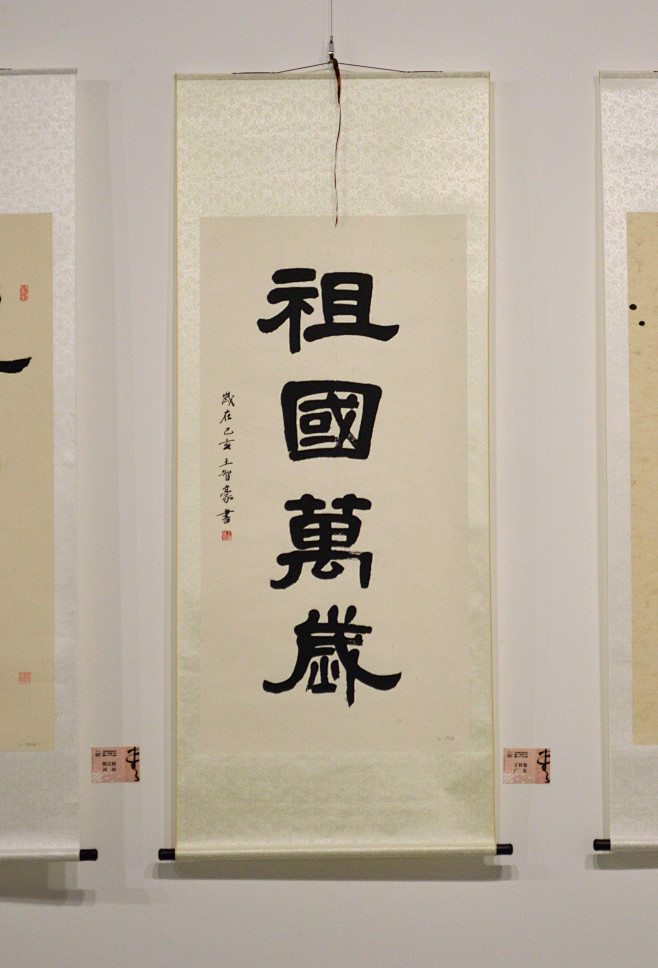 祖國萬歲
歲在己亥王智豪書